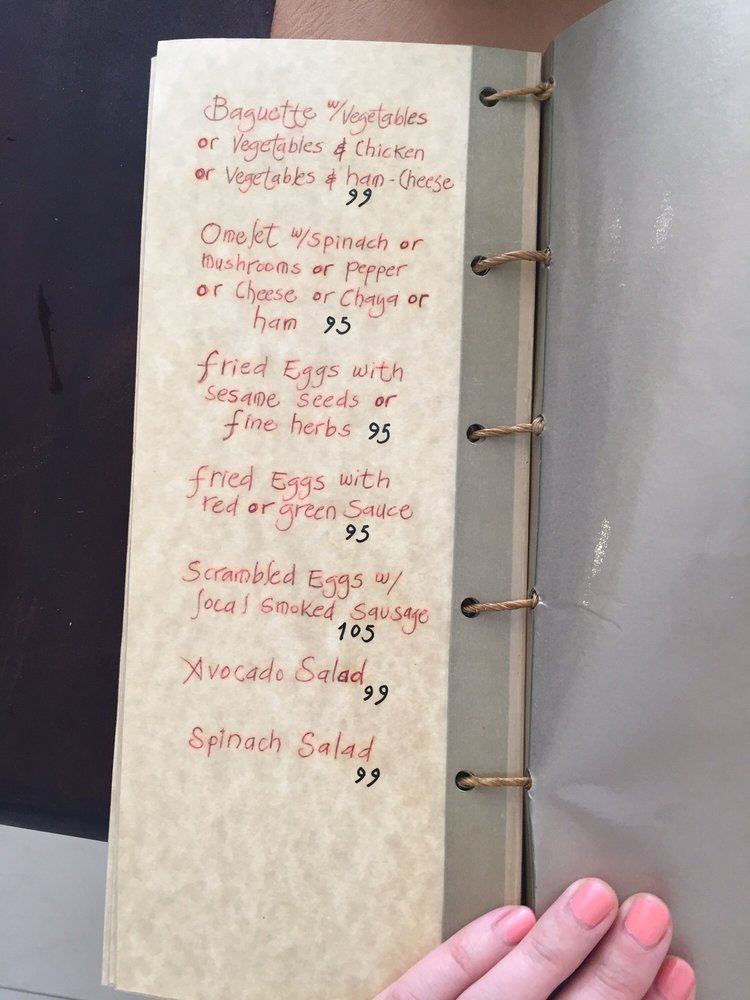 Baguette w/Vegetables
or Vegetables & Chicken
or Vegetables & ham-Cheese
99
Omelet w/spinach or
mushrooms or pepper
or Cheese or Chaya or
ham 95
fried Eggs with
sesame seeds or
fine herbs 95
fried Eggs with
red or green Sauce
95
Scrambled Eggs w/
local smoked sausage
105
Avocado Salad
99
Spinach Salad
99